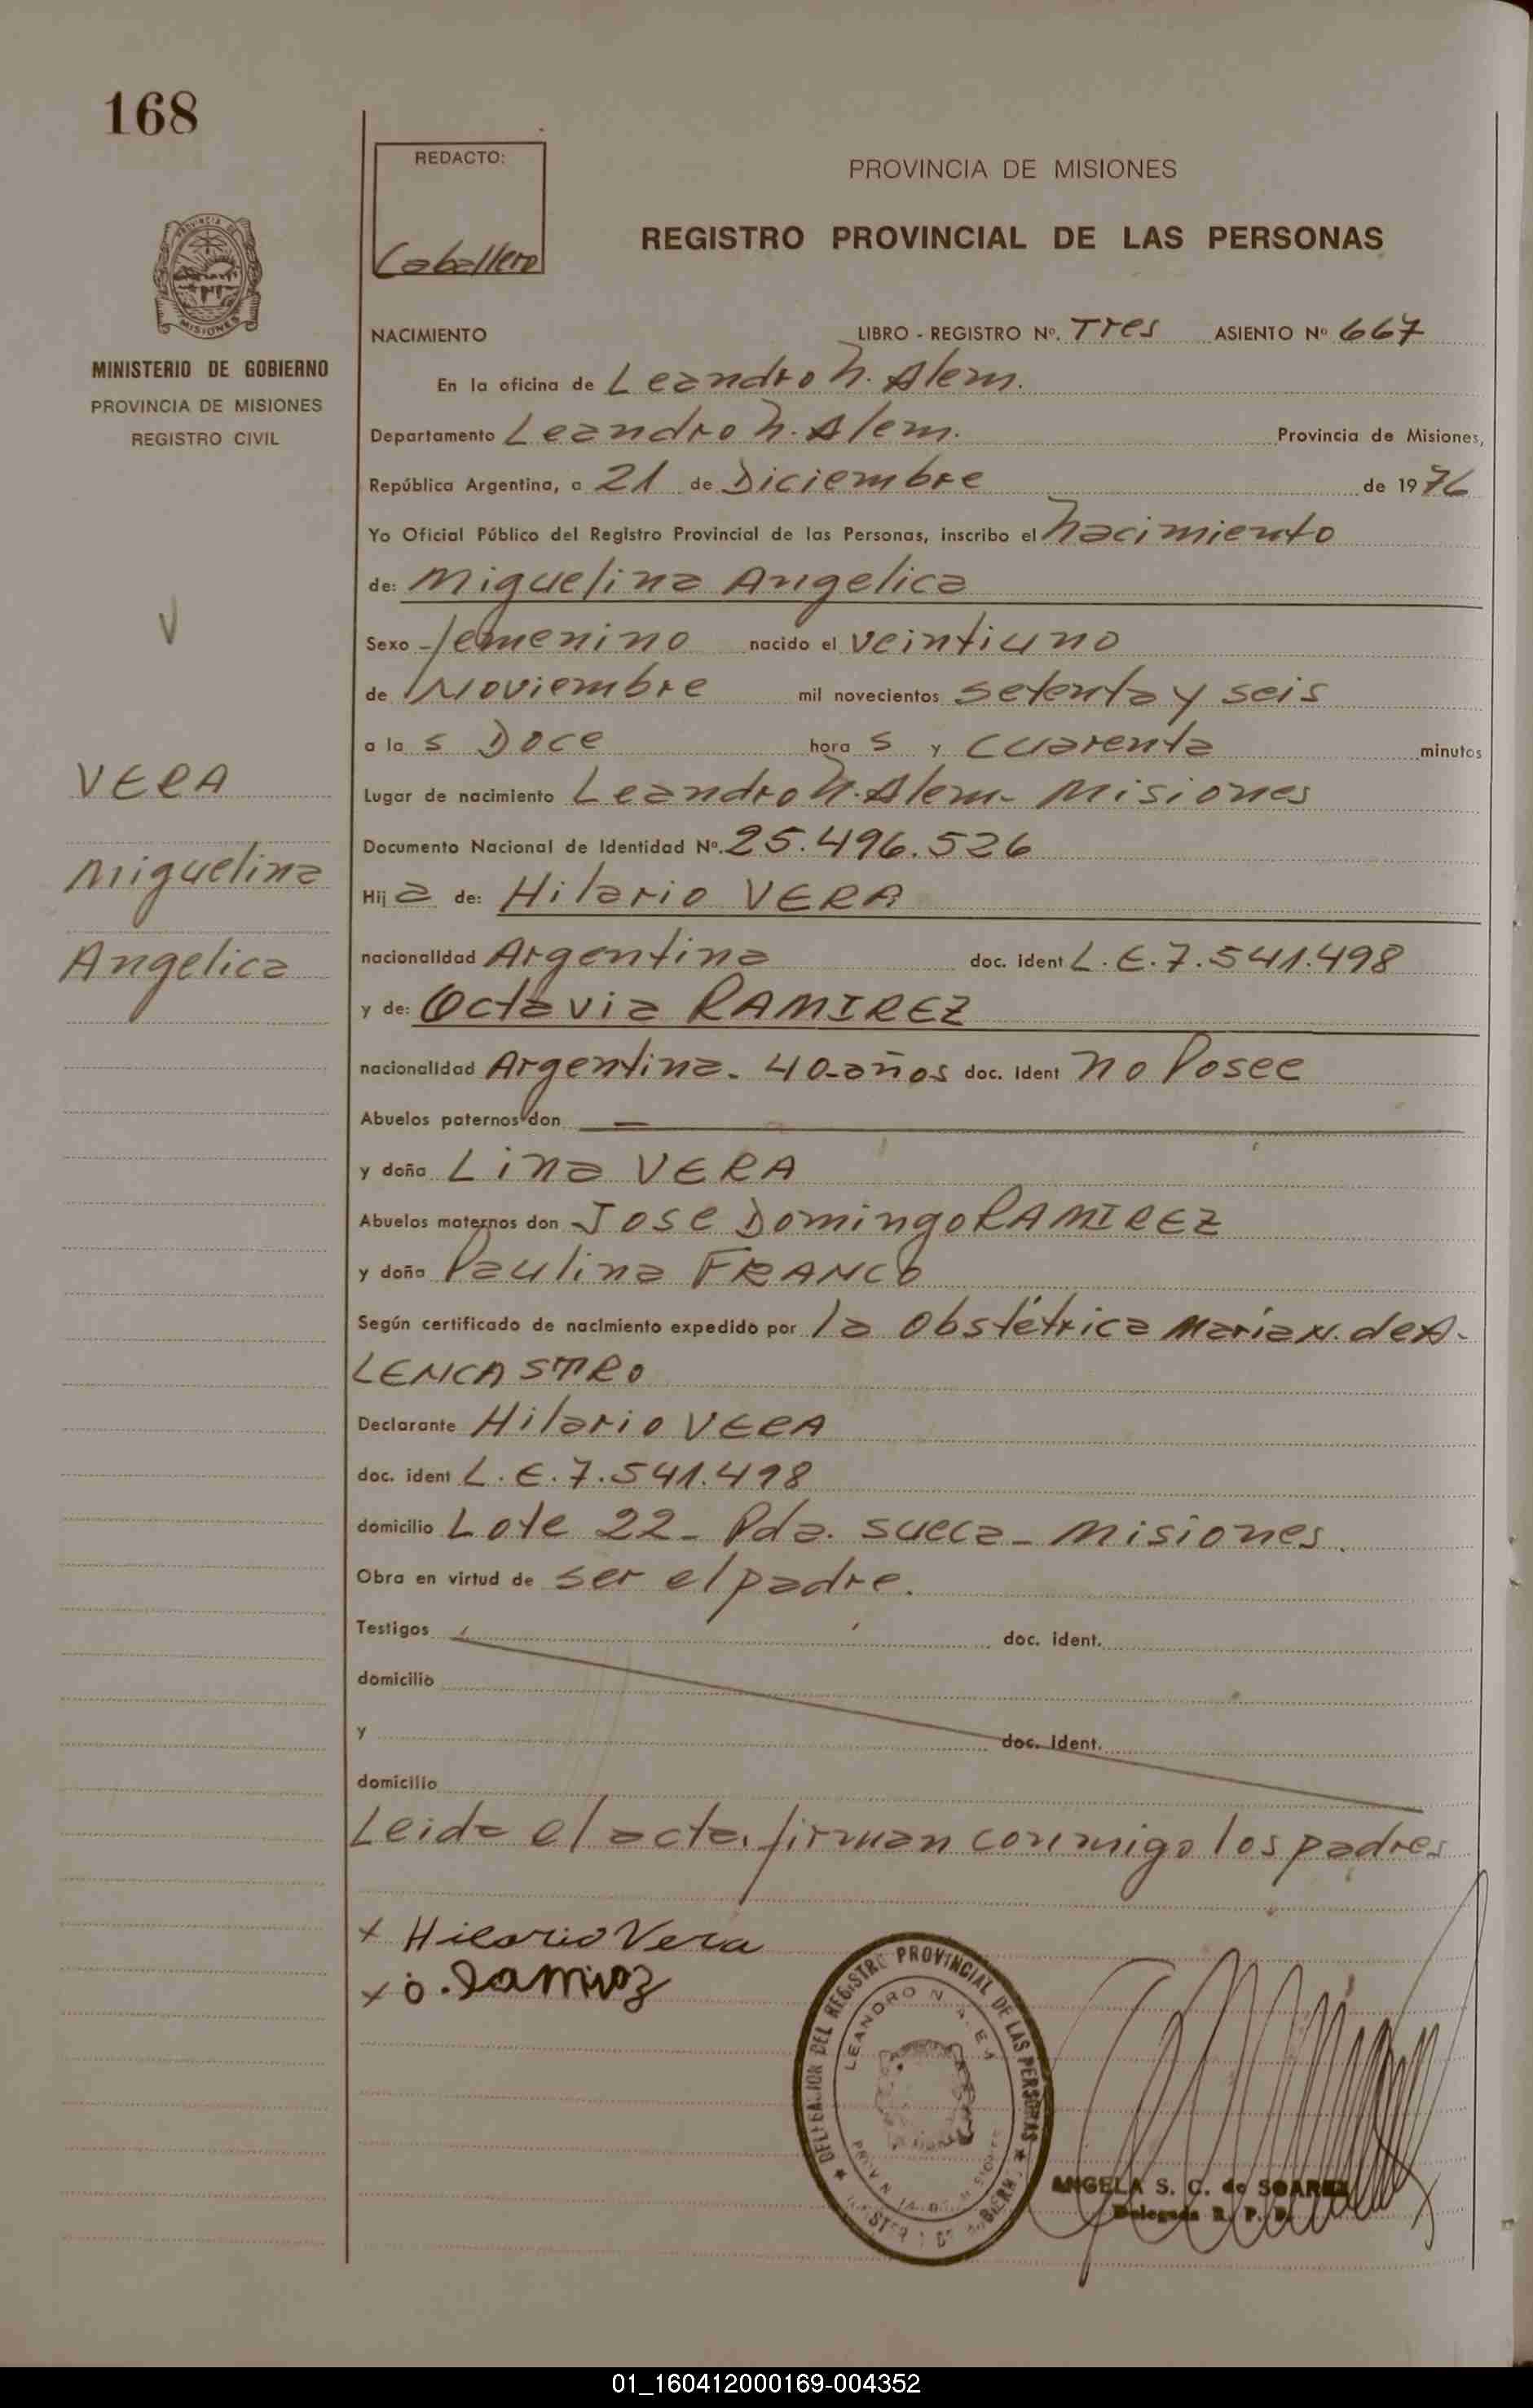 168
REDACTO:
Caballero
PROVINCIA DE MISIONES
REGISTRO PROVINCIAL DE LAS PERSONAS
MISIONES
MINISTERIO DE GOBIERNO
PROVINCIA DE MISIONES
REGISTRO CIVIL
NACIMIENTO LIBRO - REGISTRO Nº. Tres ASIENTO Nº 667
En la oficina de Leandro N. Alem.
Departamento Leandro N. Alem. Provincia de Misiones,
República Argentina, a 21 de Diciembre de 1976
Yo Oficial Público del Registro Provincial de las Personas, inscribo el Nacimiento
de: Miguelina Angelica
Sexo femenino nacido el veintiuno
de Noviembre mil novecientos setenta y seis
a la s Doce hora s y cuarenta minutos
VERA
Miguelina
Angelica
Lugar de nacimiento Leandro N. Alem - Misiones
Documento Nacional de Identidad Nº. 25.496.526
Hij a de: Hilario VERA
nacionalidad Argentina doc. ident L.E.7.541.498
y de: Octavia RAMIREZ
nacionalidad Argentina - 40-años doc. ident no Posee
Abuelos paternos don —
y doña Lina VERA
Abuelos maternos don Jose Domingo RAMIREZ
y doña Paulina FRANCO
Según certificado de nacimiento expedido por la Obstétrica Maria N. de A-
LENCASTRO
Declarante Hilario VERA
doc. ident L.E.7.541.498
domicilio Lote 22 - Pda. sueca - Misiones.
Obra en virtud de ser el padre.
Testigos doc. ident.
domicilio
y doc. ident.
domicilio
Leida el acta, firman conmigo los padres
x Hilario Vera
x O. Ramirez
DELEGACION DEL REGISTRO PROVINCIAL DE LAS PERSONAS
LEANDRO N. ALEM
ANGELA S. C. de SOAREZ
Delegada R. P. P.
01_160412000169-004352